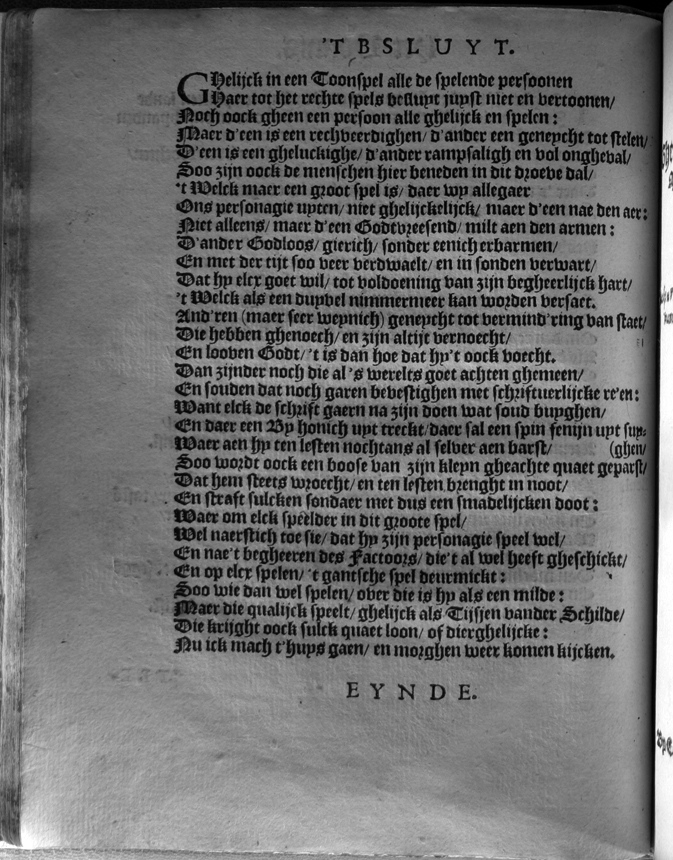 'T BSLUYT.
GHelijck in een Toonspel alle de spelende persoonen
Haer tot het rechte spels besluyt juyst niet en vertoonen/
Noch oock gheen een persoon alle ghelijck en spelen:
Maer d'een is een rechveerdighen/ d'ander een geneycht tot stelen/
D'een is een gheluckighe/ d'ander rampsaligh en vol ongheval/
Soo zijn oock de menschen hier beneden in dit droeve dal/
't Welck maer een groot spel is/ daer wy allegaer
Ons personagie uyten/ niet ghelijckelijck/ maer d'een nae den aer:
Niet alleens/ maer d'een Godtvreesend/ milt aen den armen:
D'ander Godloos/ gierich/ sonder eenich erbarmen/
En met der tijt soo veer verdwaelt/ en in sonden verwart/
Dat hy elcx goet wil/ tot voldoening van zijn begheerlijck hart/
't Welck als een duyvel nimmermeer kan worden versaet.
And'ren (maer seer weynich) geneycht tot vermind'ring van staet/
Die hebben ghenoech/ en zijn altijt vernoecht/
En looven Godt/ 't is dan hoe dat hy't oock voecht.
Dan zijnder noch die al 's werelts goet achten ghemeen/
En souden dat noch garen bevestighen met schriftuerlijcke re'en:
Want elck de schrift gaern na zijn doen wat soud buyghen/
En daer een By honich uyt treckt/ daer sal een spin fenijn uyt suy-
Waer aen hy ten lesten nochtans al selver aen barst/ (ghen/
Soo wordt oock een boose van zijn kleyn gheachte quaet geparst/
Dat hem steets wroecht/ en ten lesten brenght in noot/
En straft sulcken sondaer met dus een smadelijcken doot:
Waer om elck speelder in dit groote spel/
Wel naerstich toe sie/ dat hy zijn personagie speel wel/
En nae't begheeren des Factoors/ die't al wel heeft gheschickt/
En op elcx spelen/ 't gantsche spel deurmickt:
Soo wie dan wel spelen/ over die is hy als een milde:
Maer die qualijck speelt/ ghelijck als Tijsjen vander Schilde/
Die krijght oock sulck quaet loon/ of dierghelijcke:
Nu ick mach t'huys gaen/ en morghen weer komen kijcken.
EYNDE.